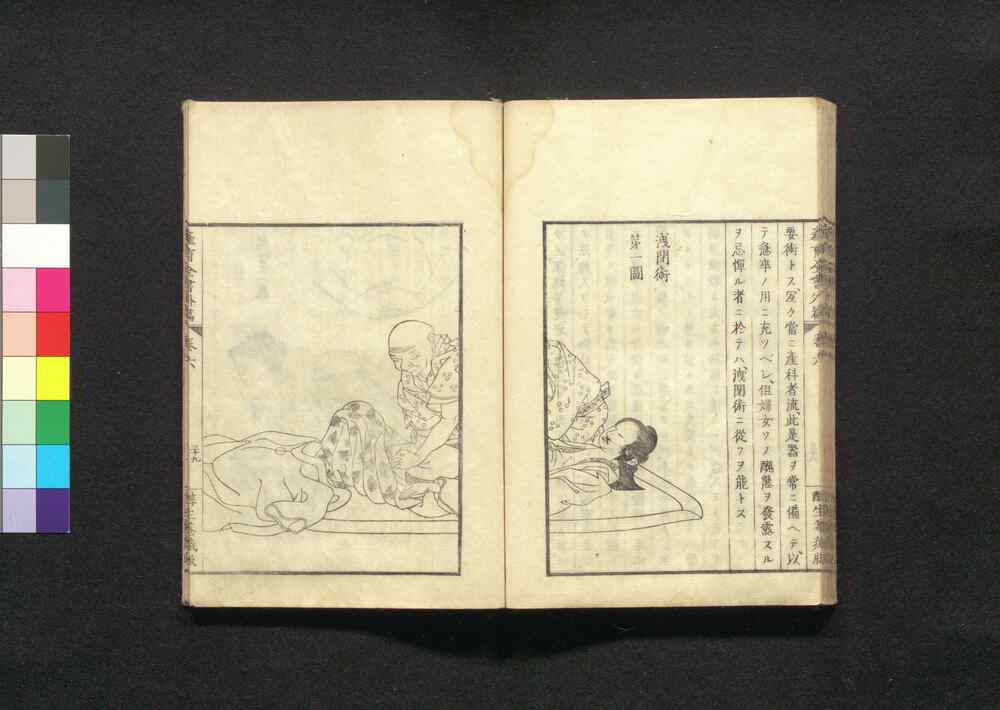 要術トス、宜ク當ニ産科者流、此是器ヲ常ニ備ヘテ、以
テ急卒ノ用ニ充ツベシ、但婦女ソノ醜態ヲ發露スル
ヲ忌憚ル者ニ於テハ、洩閉術ニ從フヲ能トス
洩閉術
第一圖
産育全書外篇
卷六
二十九